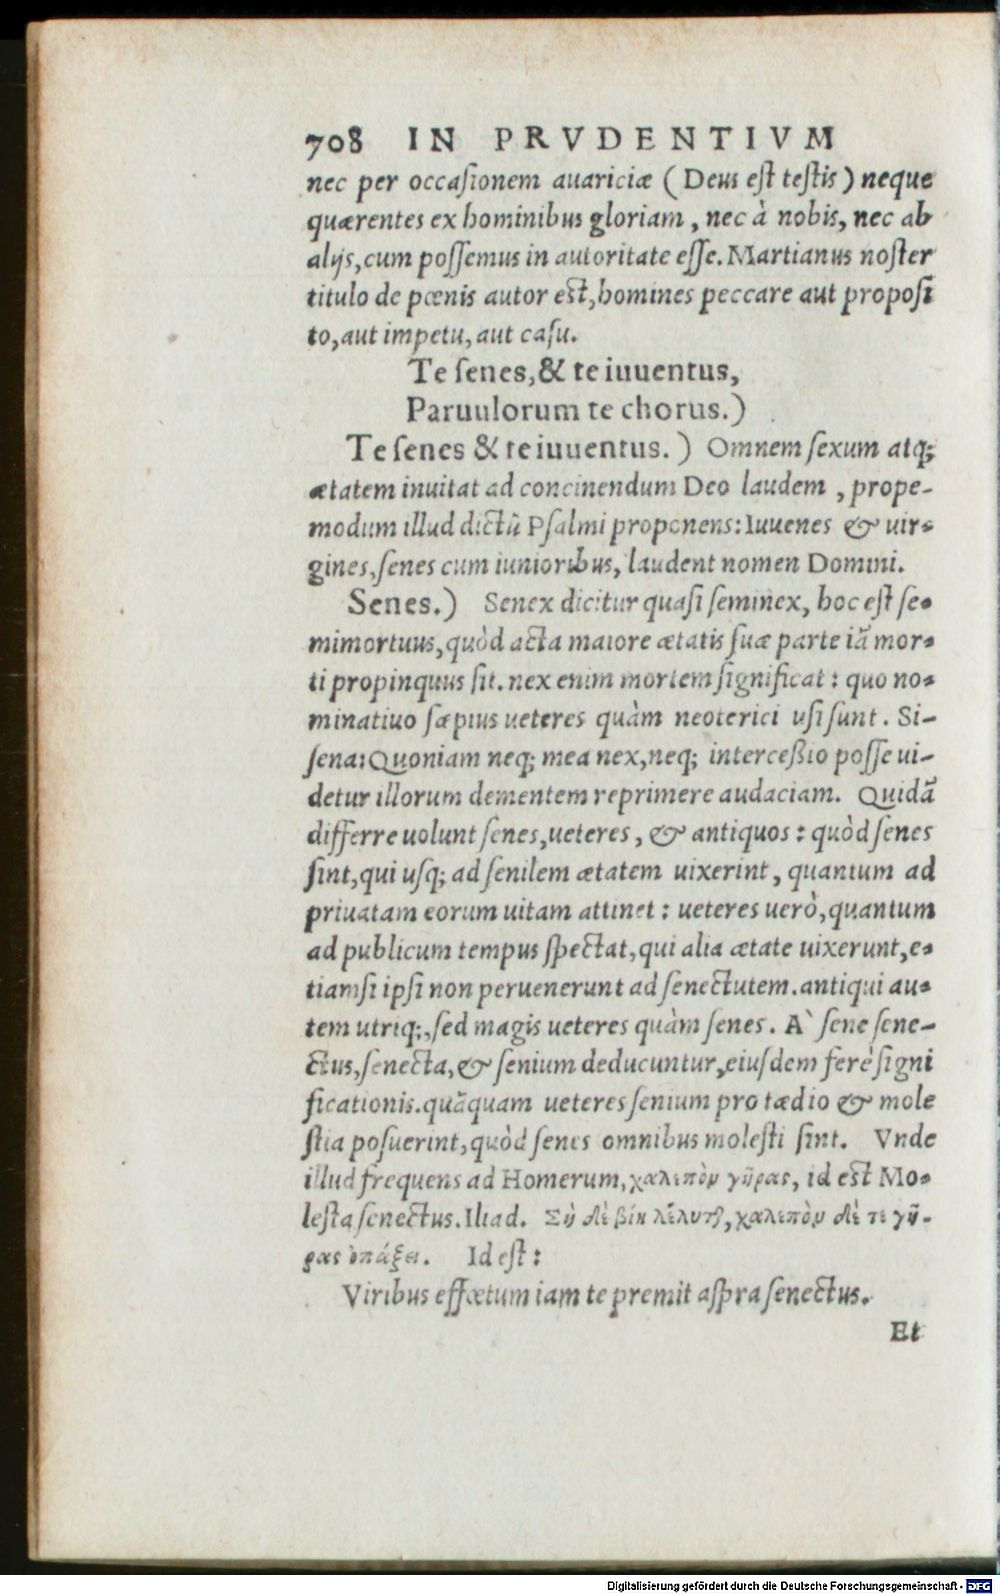 708 IN PRVDENTIVM
nec per occasionem auariciæ (Deus est testis) neque
quærentes ex hominibus gloriam, nec à nobis, nec ab
alijs, cum possemus in autoritate esse. Martianus noster
titulo de pœnis autor est, homines peccare aut proposi
to, aut impetu, aut casu.
Te senes, & te iuuentus,
Paruulorum te chorus.)
Te senes & te iuuentus.) Omnem sexum atq;
ætatem inuitat ad concinendum Deo laudem, prope-
modum illud dictũ Psalmi proponens: Iuuenes & uir-
gines, senes cum iunioribus, laudent nomen Domini.
Senes.) Senex dicitur quasi seminex, hoc est se-
mimortuus, quòd acta maiore ætatis suæ parte iã mor-
ti propinquus sit. nex enim mortem significat: quo no-
minatiuo sæpius ueteres quàm neoterici usi sunt. Si-
sena: Quoniam neq; mea nex, neq; interceßio posse ui-
detur illorum dementem reprimere audaciam. Quidã
differre uolunt senes, ueteres, & antiquos: quòd senes
sint, qui usq; ad senilem ætatem uixerint, quantum ad
priuatam eorum uitam attinet: ueteres uerò, quantum
ad publicum tempus spectat, qui alia ætate uixerunt, e-
tiamsi ipsi non peruenerunt ad senectutem. antiqui au-
tem utriq;, sed magis ueteres quàm senes. A` sene sene-
ctus, senecta, & senium deducuntur, eiusdem ferè signi
ficationis. quãquam ueteres senium pro tædio & mole
stia posuerint, quòd senes omnibus molesti sint. Vnde
illud frequens ad Homerum, χαλεπὸν γῆρας, id est Mo-
lesta senectus. Iliad. Σὴ δὲ βίη λέλυται, χαλεπὸν δέ τε γῆ-
ρας ὀπάζει. Id est:
Viribus effœtum iam te premit aspra senectus.
Et
Digitalisierung gefördert durch die Deutsche Forschungsgemeinschaft - DFG